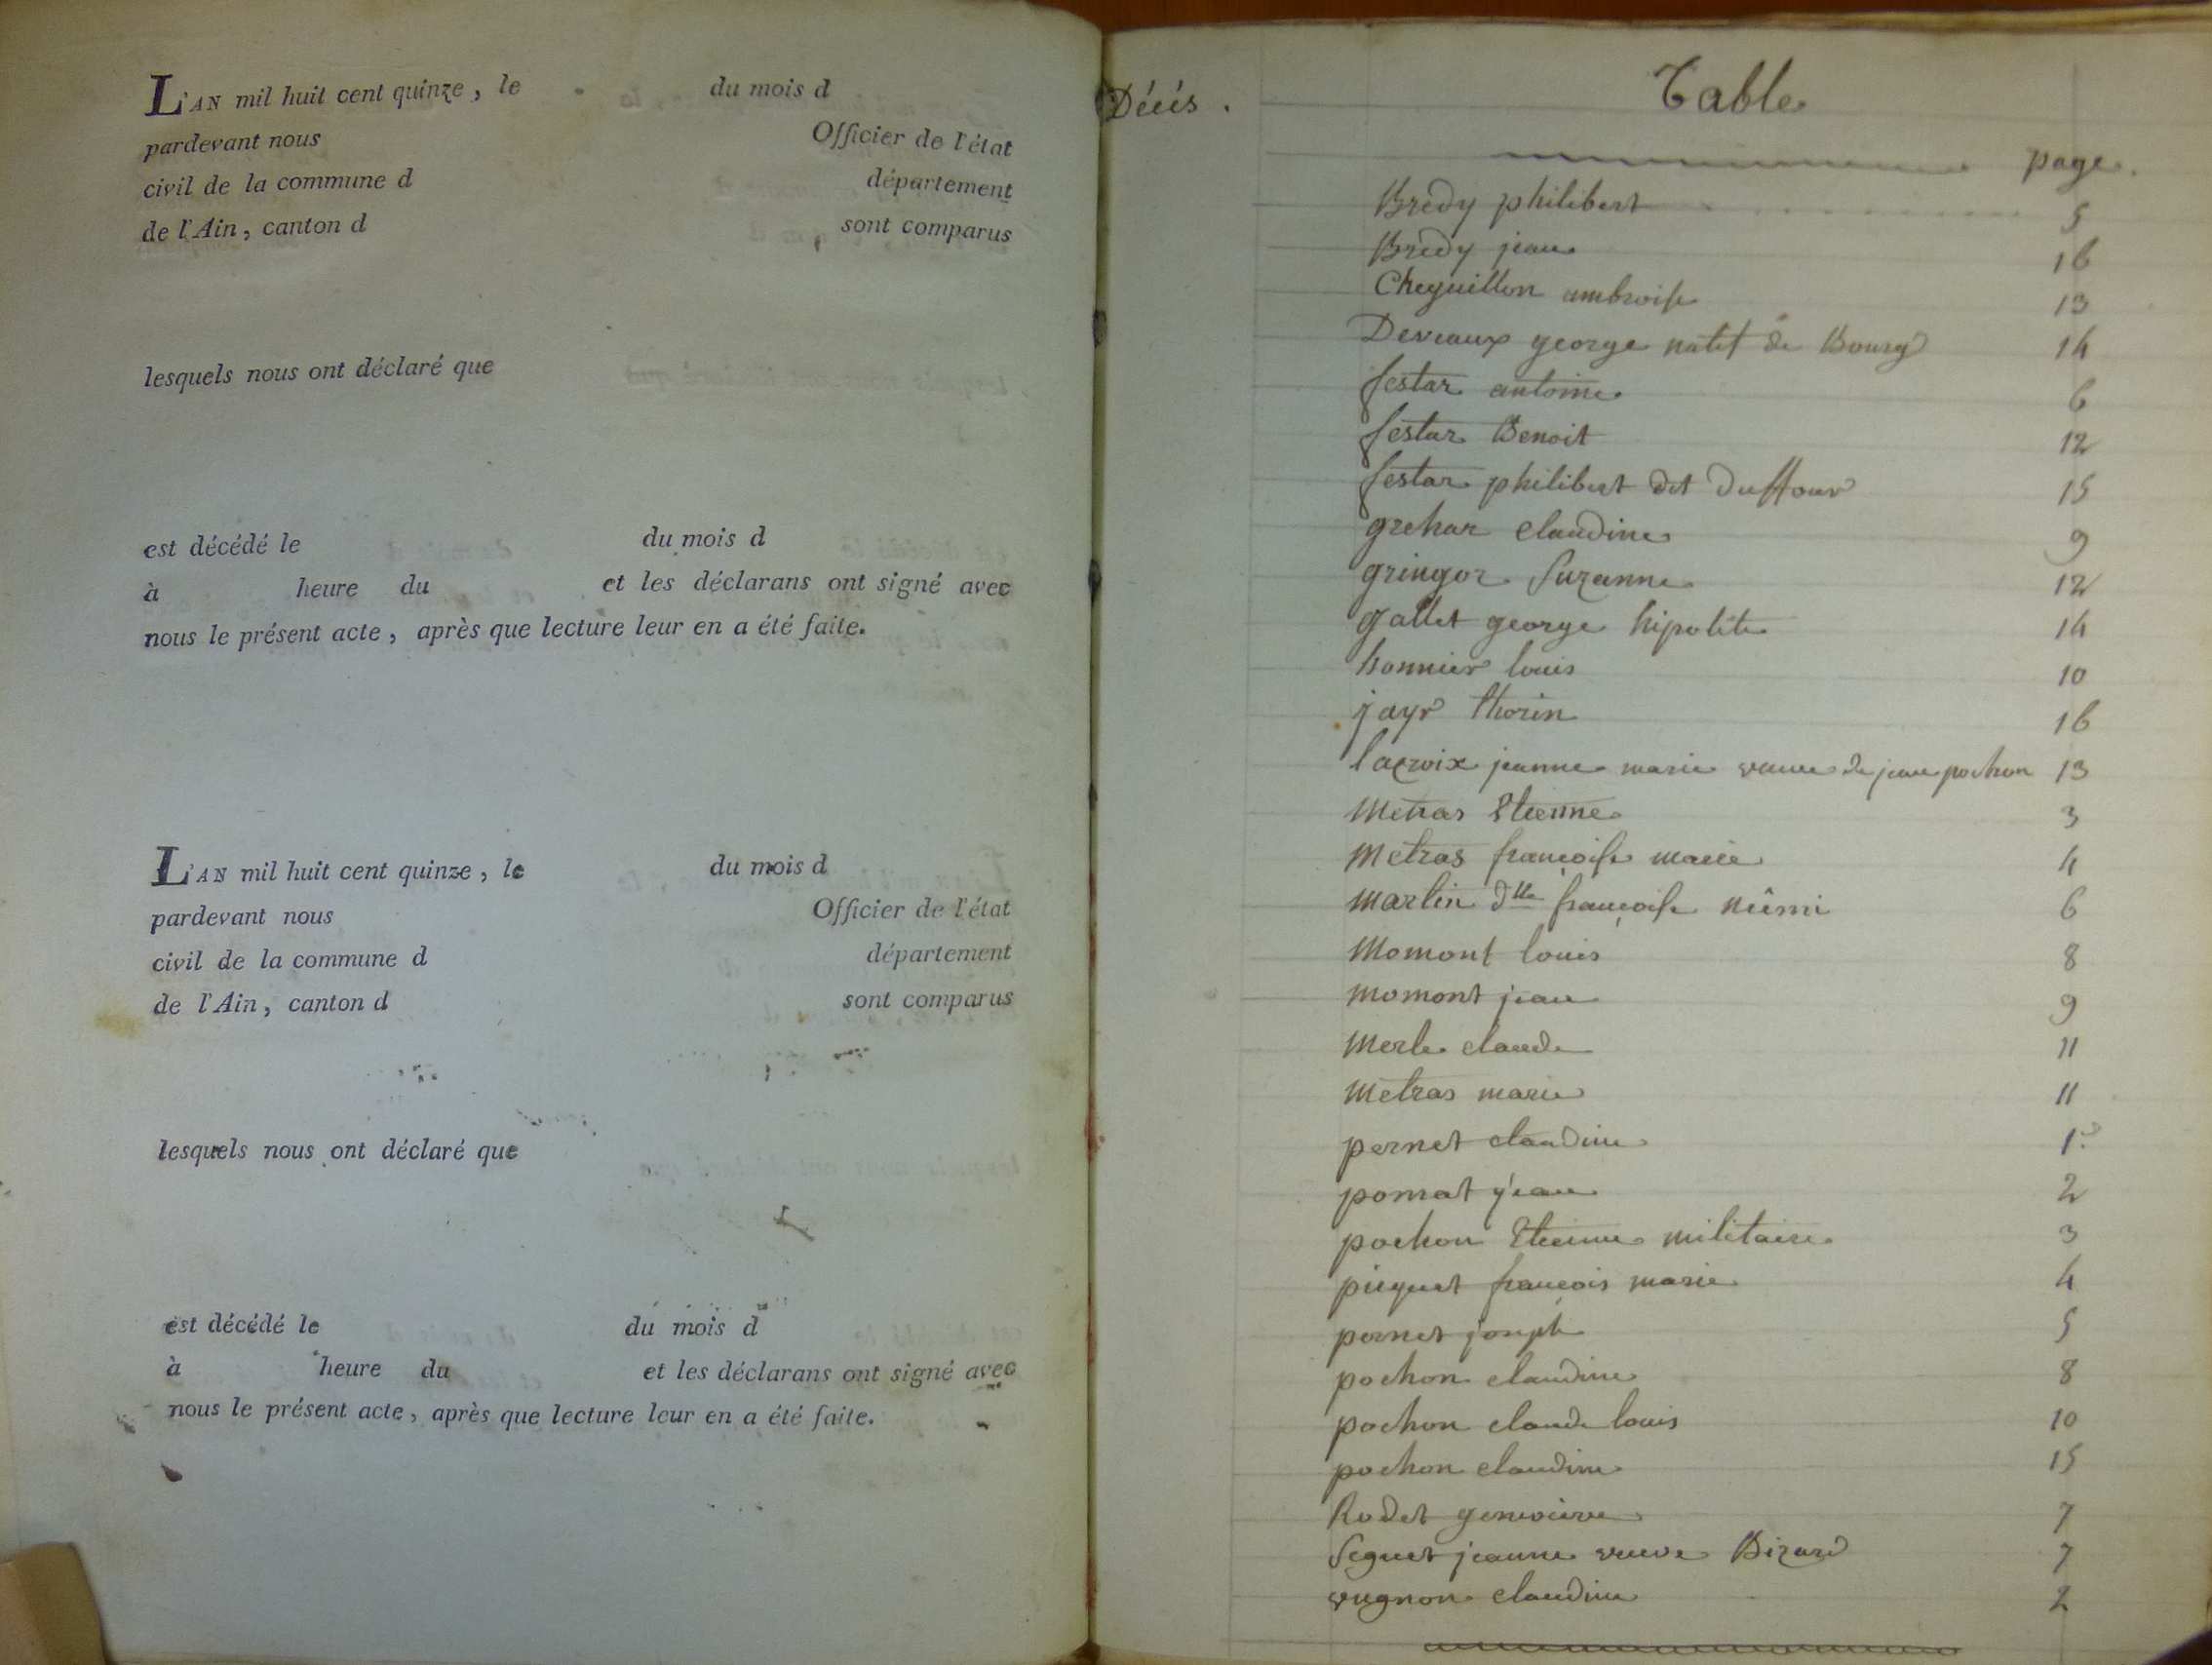 L'AN mil huit cent quinze, le du mois d
pardevant nous Officier de l'état
civil de la commune d département
de l'Ain, canton d sont comparus
lesquels nous ont déclaré que
est décédé le du mois d
à heure du et les déclarans ont signé avec
nous le présent acte, après que lecture leur en a été faite.
L'AN mil huit cent quinze, le du mois d
pardevant nous Officier de l'état
civil de la commune d département
de l'Ain, canton d sont comparus
lesquels nous ont déclaré que
est décédé le du mois d
à heure du et les déclarans ont signé avec
nous le présent acte, après que lecture leur en a été faite.
Décés.
Table
page.
Bredy philibert 5
Bredy jean 16
Cheguillon ambroise 13
Deveaux george natif de Bourg 14
festar antoine 6
festar Benoit 12
festar philibert dit Duffour 15
grehar claudine 9
gringoz Suzanne 12
gallet george hipolite 14
honnier louis 10
jayr thorin 16
lacroix jeanne marie veuve de jean pochon 13
Metras Etienne 3
Metras francoise marie 4
Martin dlle françoise 6
Momont louis 8
Momont jean 9
Merle claude 11
Metras marie 11
pernet claudine 1
ponsat jean 2
pochon Etienne militaire 3
piquet francois marie 4
pernet joseph 5
pochon claudine 8
pochon claude louis 10
pochon claudine 15
Rodet genevieve 7
Seguet jeanne veuve Bizard 7
vugnon claudine 2